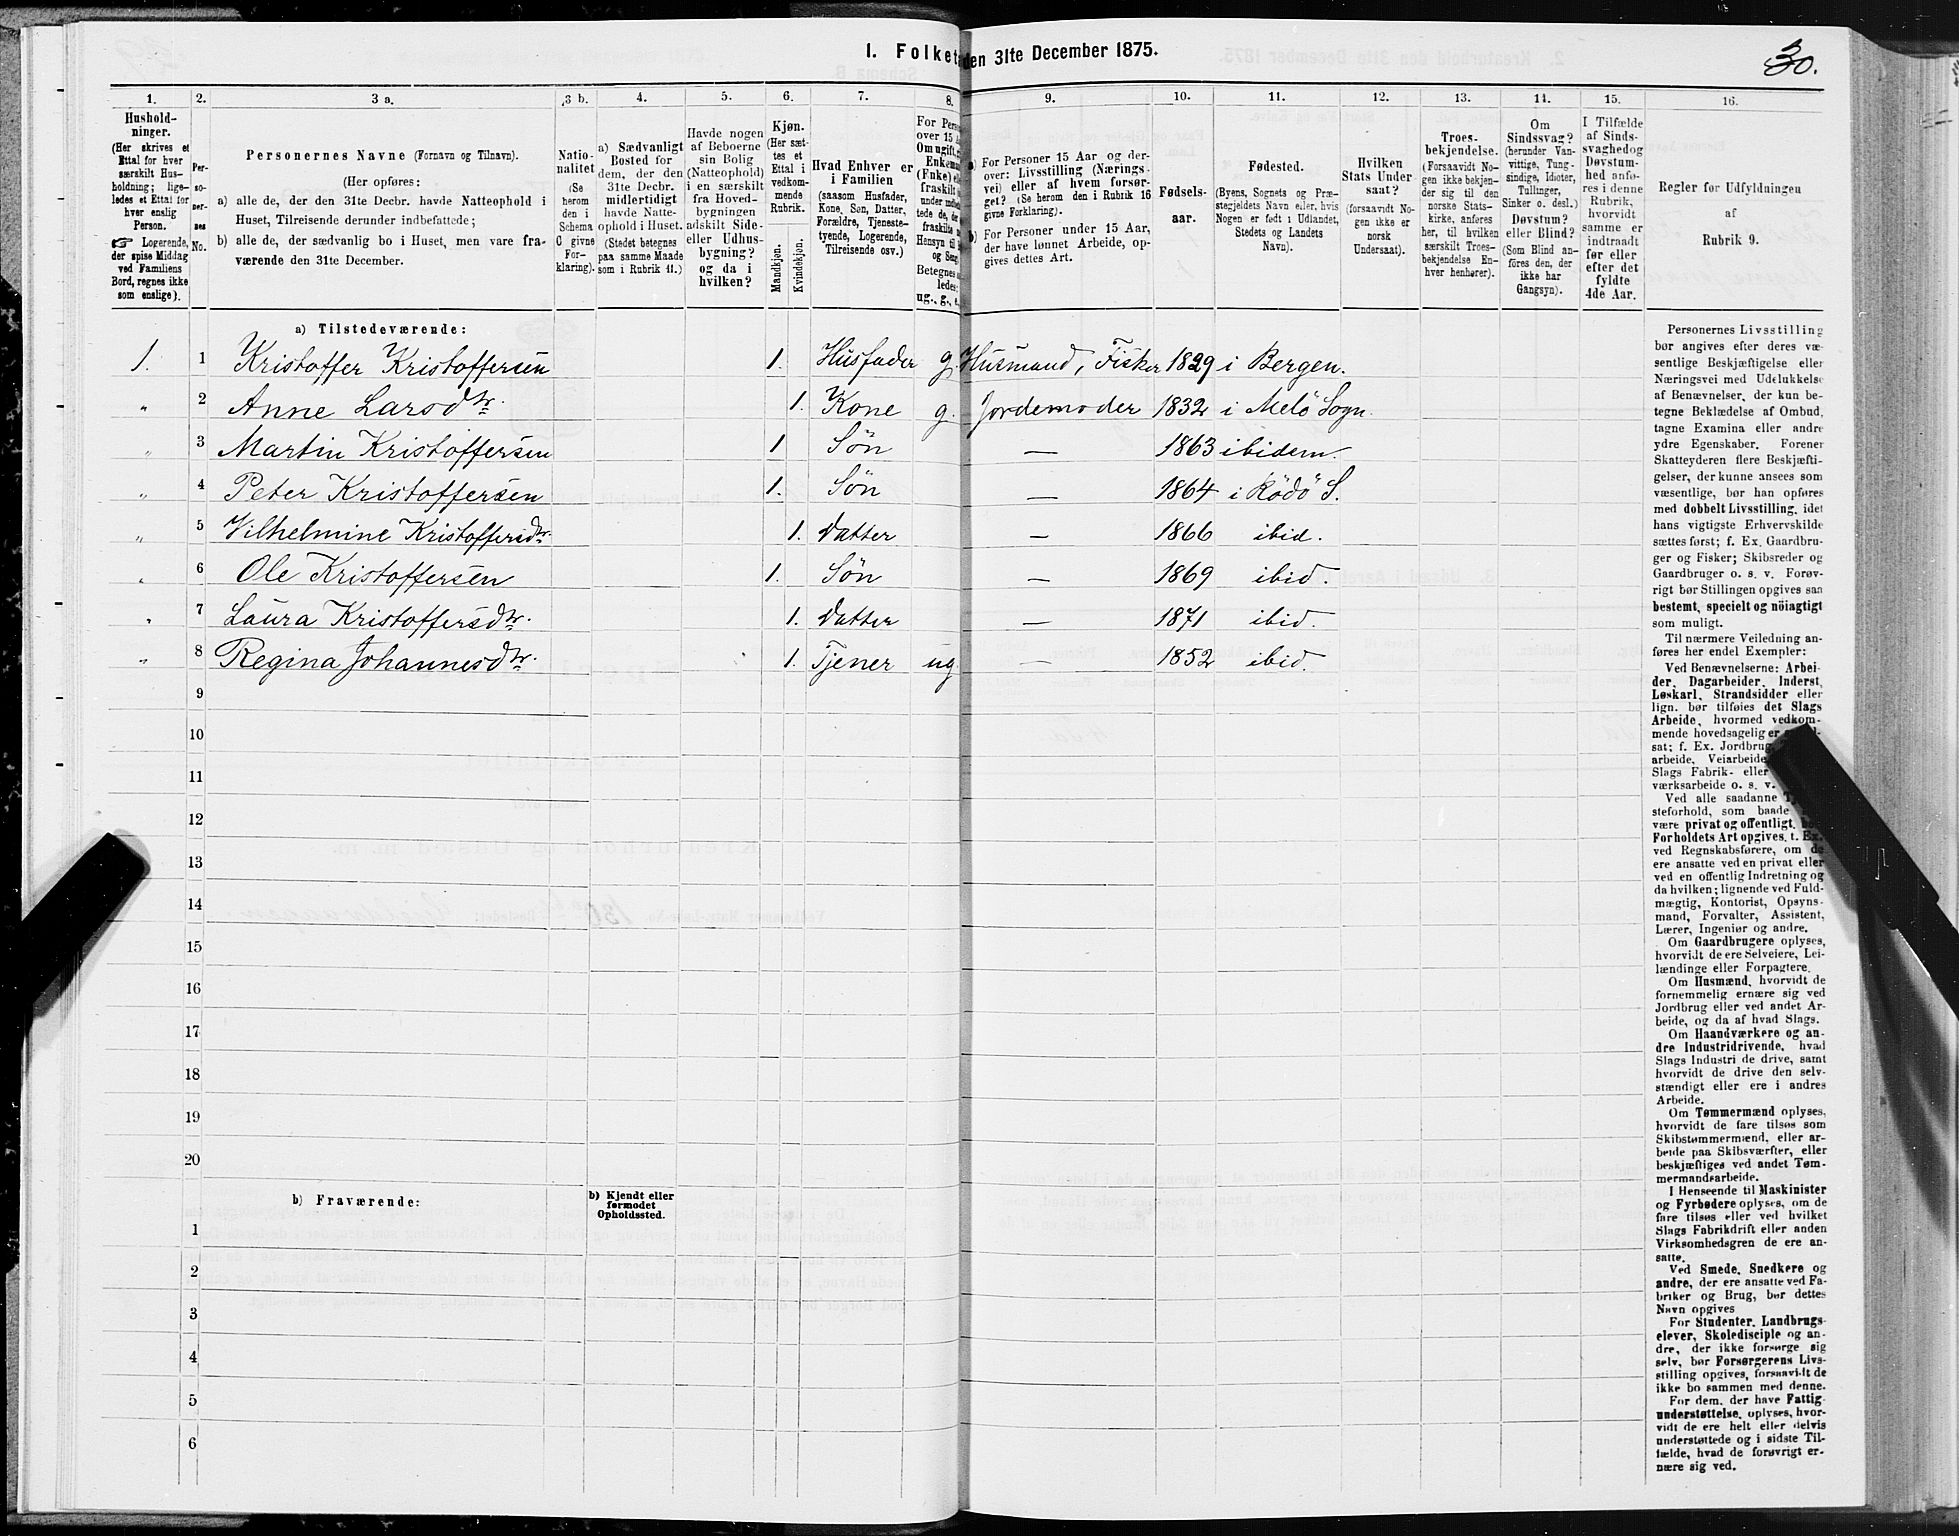 1. Folket
den 31te December 1875.
30.
1.
2.
3 a.
3 b.
4.
5.
6.
7.
8.
9.
10.
11.
12.
13.
14.
15.
16.
Hushold-
ninger.
(Her skrives et
Ettal for hver
særskilt Hus-
holdning; lige-
ledes et Ettal for
hver enslig
Person.
☞ Logerende,
der spise Middag
ved Familiens
Bord, regnes ikke
som enslige).
Per-
so-
ner-
nes
No.
Personernes Navne (Fornavn og Tilnavn).
(Her opføres:
a) alle de, der den 31te Decbr. havde Natteophold i
Huset, Tilreisende derunder indbefattede;
b) alle de, der sædvanlig bo i Huset, men vare fra-
værende den 31te December.
Natio-
nalitet
(Se
herom
den i
Schema
C givne
For-
klaring).
a) Sædvanligt
Bosted for
dem, der den
31te Decbr.
midlertidigt
havde Natte-
ophold i Huset.
(Stedet betegnes
paa samme Maade
som i Rubrik 11.)
Havde nogen
af Beboerne
sin Bolig
(Natteophold)
i en særskilt
fra Hoved-
bygningen
adskilt Side-
eller Udhus-
bygning?
og da i
hvilken?
Kjøn.
(Her sæt-
tes et
Ettal i
vedkom-
mende
Rubrik.
Mandkjøn.
Kvindekjøn.
Hvad Enhver er
i Familien
(saasom Husfader,
Kone, Søn, Datter,
Forældre, Tjeneste-
tyende, Logerende,
Tilreisende osv.)
For Pers
over 15 A
Om ugift,
Enkem
(Enke)
fraskilt
Betegnes
ledes:
ug., g., e.,
a) For Personer 15 Aar og der-
over: Livsstilling (Nærings-
vei) eller af hvem forsør-
get? (Se herom den i Rubrik 16
givne Forklaring).
b) For Personer under 15 Aar,
der have lønnet Arbeide, op-
gives dettes Art.
Fødsels-
aar.
Fødested.
(Byens, Sognets og Præ-
stegjeldets Navn eller, hvis
Nogen er født i Udlandet,
Stedets og Landets
Navn).
Hvilken
Stats Under
saat?
(forsaavidt No-
gen ikke er
norsk
Undersaat).
Troes-
bekjendelse.
(Forsaavidt No-
gen ikke bekjen-
der sig til den
norske Stats-
kirke, anføres
her, til hvilken
særskilt Troes-
bekjendelse En-
hver henhører).
Om
Sindssvag?
(herunder Van-
vittige, Tung-
sindige, Idioter,
Tullinger,
Sinker o. desl.)
Døvstum?
eller Blind?
(Som Blind an-
føres den, der
ikke har
Gangsyn).
I Tilfælde
af Sinds-
svaghed og
Døvstum-
hed anfø-
res i denne
Rubrik,
hvorvidt
samme er
indtraadt
før eller
efter det
fyldte
4de Aar.
Regler for Udfyldningen
af
Rubrik 9.
a) Tilstedeværende:
1. 1 Kristoffer Kristoffersen 1. Husfader g. Husmand, Fisker 1829 i Bergen.
" 2 Anne Larsdtr. 1. Kone g. Jordemoder 1832 i Melö Sogn.
" 3 Martin Kristoffersen 1 Sön — 1863 ibidem.
" 4 Peter Kristoffersen 1. Sön — 1864 i Rödö S.
" 5 Vilhelmine Kristoffersdtr. 1. Datter — 1866 ibid.
" 6 Ole Kristoffersen 1. Sön — 1869 ibid.
" 7 Laura Kristoffersdtr. 1. Datter — 1871 ibid.
" 8 Regina Johannesdtr. 1. Tjener ug — 1852 ibid.
9
10
11
12
13
14
15
16
17
18
19
20
b) Fraværende:
b) Kjendt eller
formodet
Opholdssted.
1
2
3
4
5
6
Personernes Livsstilling
bør angives efter deres væ-
sentlige Beskjæftigelse eller
Næringsvei med Udelukkelse
af Benævnelser, der kun be-
tegne Beklædelse af Ombud,
tagne Examina eller andre
ydre Egenskaber. Forener
Skatteyderen flere Beskjæfti-
gelser, der kunne ansees som
væsentlige, bør han opføres
med dobbelt Livsstilling, idet
hans vigtigste Erhvervskilde
sættes først; f. Ex. Gaardbru-
ger og Fisker; Skibsreder og
Gaardbruger o. s. v. Forøv-
rigt bør Stillingen opgives saa
bestemt, specielt og nöiagtigt
som muligt.
Til nærmere Veiledning an-
føres her endel Exempler:
Ved Benævnelserne: Arbei-
der, Dagarbeider, Inderst,
Løskarl, Strandsidder eller
lign. bør tilføies det Slags
Arbeide, hvormed vedkom-
mende hovedsagelig er
sat; f. Ex. Jordbrug,
arbeide, Veiarbeide
Slags Fabrik- eller
værksarbeide o. s. v.
Ved alle saadanne
steforhold, som baade
være privat og offentligt,
Forholdets Art opgives, t. Ex.
ved Regnskabsførere, om de
ere ansatte ved en privat eller
ved en offentlig Indretning og
da hvilken; lignende ved Fuld-
mægtig, Kontorist, Opsyns-
mand, Forvalter, Assistent,
Lærer, Ingeniør og andre.
Om Gaardbrugere oplyses,
hvorvidt de ere Selveiere, Lei-
lændinge eller Forpagtere.
Om Husmænd, hvorvidt de
fornemmelig ernære sig ved
Jordbrug eller ved andet Ar-
beide, og da af hvad Slags.
Om Haandværkere og an-
dre Industridrivende, hvad
Slags Industri de drive, samt
hvorvidt de drive den selv-
stændigt eller ere i andres
Arbeide.
Om Tømmermænd oplyses,
hvorvidt de fare tilsøs som
Skibstømmermænd, eller ar-
beide paa Skibsværfter, eller
beskjæftiges ved andet Tøm-
mermandsarbeide.
I Henseende til Maskinister
og Fyrbødere oplyses, om de
fare tilsøs eller ved hvilket
Slags Fabrikdrift eller anden
Virksomhedsgren de ere an-
satte.
Ved Smede, Snedkere og
andre, der ere ansatte ved Fa-
briker og Brug, bør dettes
Navn opgives
For Studenter, Landbrugs-
elever, Skoledisciple og an-
dre, der ikke forsørge sig
selv, bør Forsørgerens Livs-
stilling opgives, forsaavidt de
ikke bo sammen med denne.
For dem, der have Fattig-
understøttelse, oplyses, hvor-
vidt de ere helt eller delvis
understøttede og i sidste Til-
fælde, hvad de forøvrigt er-
nære sig ved.